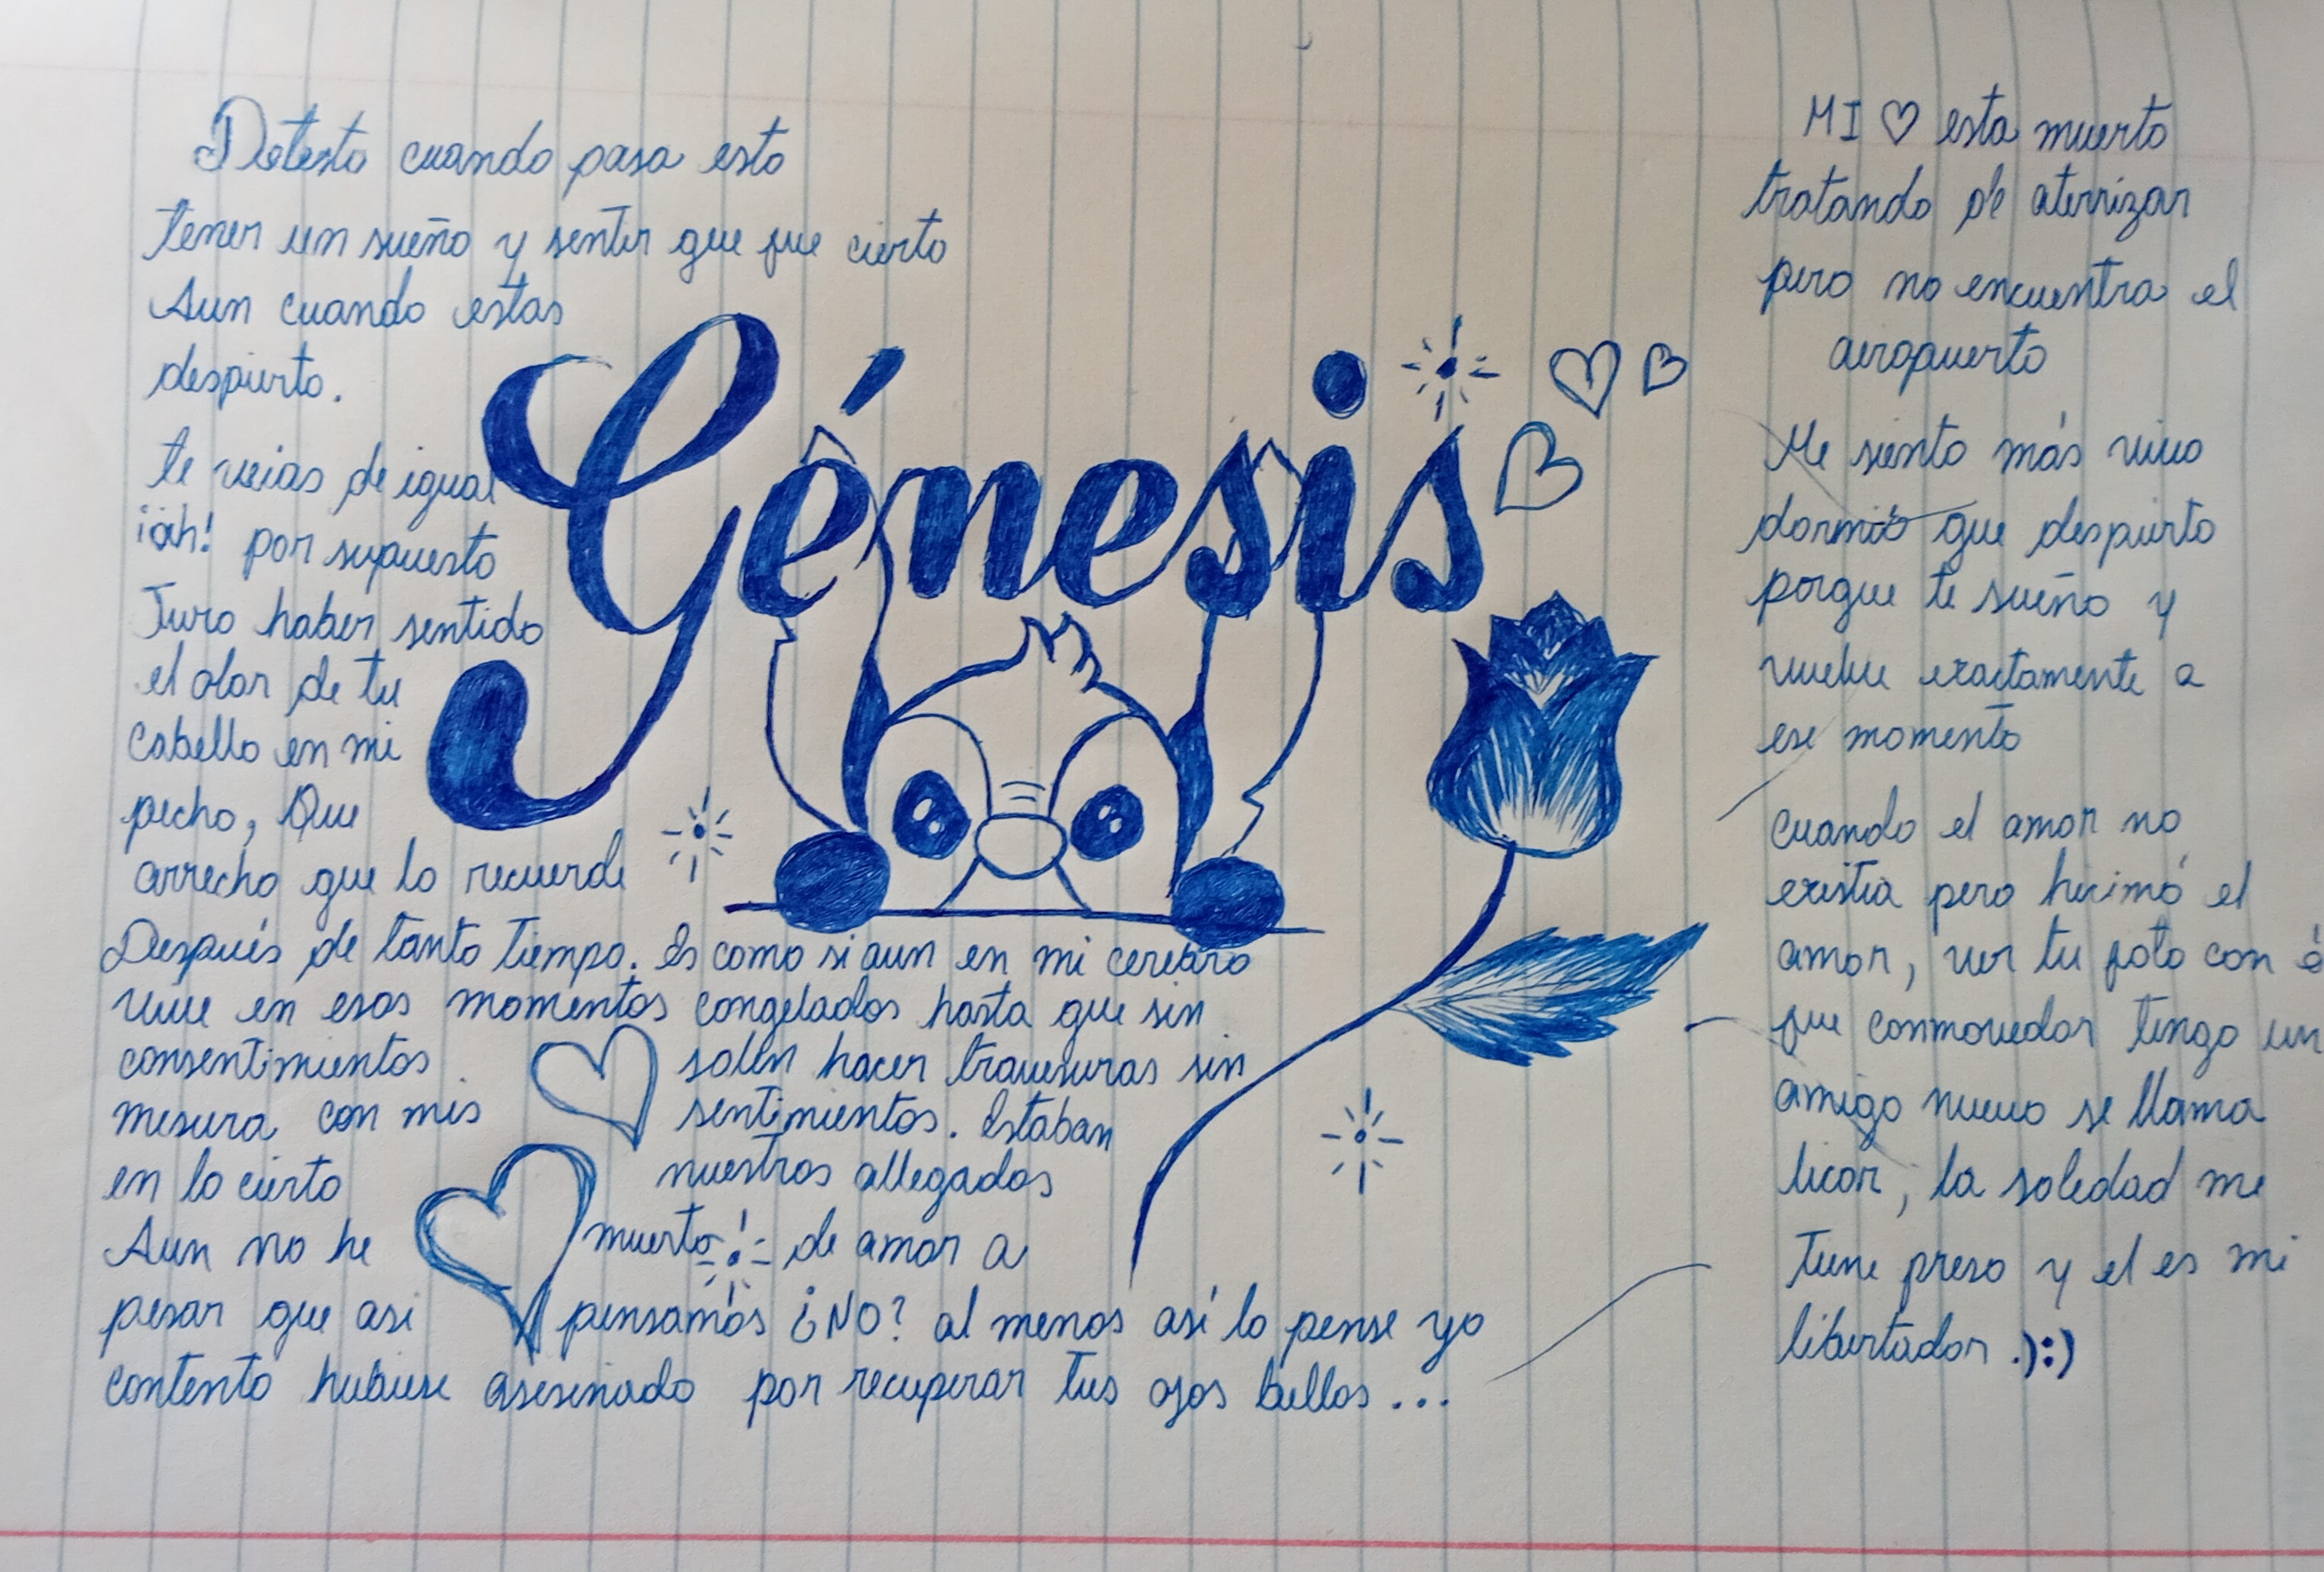 Detesto cuando pasa esto
tener un sueño y sentir que fue cierto
Aun cuando estas
despierto.
te veias de igual
¡ah! por supuesto
Juro haber sentido
el olor de tu
cabello en mi
pecho, Que
arrecho que lo recuerde
Después de tanto tiempo. Es como si aun en mi cerebro
vive en esos momentos congelados hasta que sin
consentimientos salen hacer travesuras sin
mesura con mis sentimientos. Estaban
en lo cierto nuestros allegados
Aun no he muerto de amor a
pesar que asi pensamos ¿NO? al menos así lo pense yo
contento hubiese asesinado por recuperar tus ojos bellos...
Génesis
MI ♡ esta muerto
tratando de aterrizar
pero no encuentra el
aeropuerto
Me siento más vivo
dormió que despierto
porque te sueño y
vuelve exactamente a
ese momento
cuando el amor no
existia pero hicimó el
amor, ver tu foto con é
fue conmovedor tengo un
amigo nuevo se llama
licor, la soledad me
Tiene preso y el es mi
libertador .):)